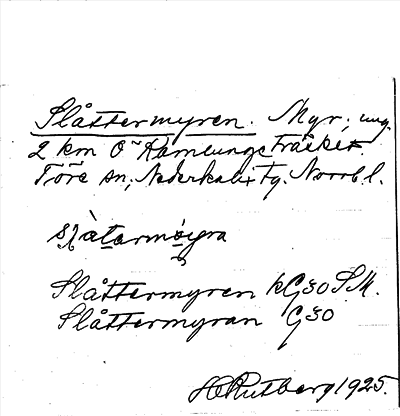 Slåttermyren. Myr, ung.
2 km O Kamlunge träsket.
Töre sn, Nederkalix tg. Norrb. l.
Slåttermyren kG30 S.M.
Slåttermyran G30
H Rutberg 1925.